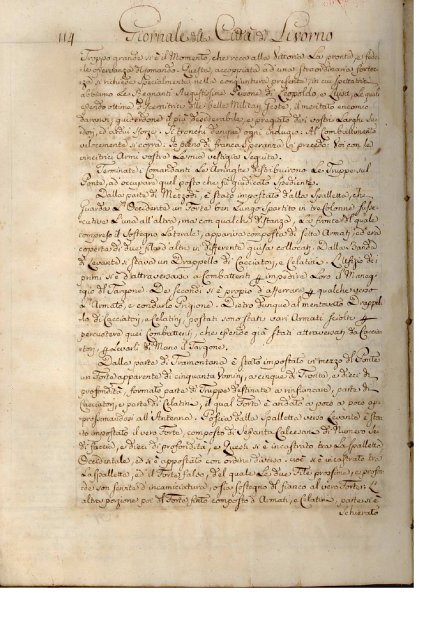 114 Giornale della Città di Livorno
Troppo grande si è il Momento, che reca alla Vittoria La pronta, e fedele
esperienza di Comando. Questa, accoppiata ad una straordinaria fortezza
si richiede specialmente nella congiuntura presente, in cui spettatori
abbiamo Le Regnanti Augustissime Persone di Leopoldo, e Luisa, Le quali
essendo ottime discernitrici delle Belle Militari Gesta, il meritato encomio
daranno, guiderdone il più desiderabile, e pregiato dei vostri Laghi
ed ardui sforzi. Si tronchi dunque ogni indugio. Al Combattimento
velocemente si corra. Io pieno di franca speranza vi precedo: Voi con Le
vincitrici Armi vostre Le mie vestigia seguite.
Terminate i Comandanti Le Aringhe distribuirono Le Truppe sul
Ponte, ad occupare quel posto che fu giudicato spediente.
Dalla parte di Mezzodì, è stato impostato dalla Spalletta, che
guarda L'Occidente un Forte ben Lungo, partito in tre Colonne
L'una all'altra, ma con qualche distanza, La fronte del quale
compreso il Sostegno Laterale, appariva composta di sette Armati, ed era
coperta di due filari altri in differente guisa collocati. Dalla Banda
di Levante si stava un Drappello di Cacciatori, e Celatini. L'ufizio dei
primi si è d'attraversare ai Combattenti per impedire Loro il Maneggio
del Targone. Dei secondi si è proprio d'afferrare qualche
Armato, e condurlo Prigione. Dietro dunque al mentovato Drappello
di Cacciatori, e Celatini, postati sono stati vari Armati sciolti per
percuotere quei Combattenti, che essendo già stati attraversati da Cacciatori
Levarli di Mano il Targone.
Dalla parte di Tramontana è stato impostato in mezzo di Ponte
un Forte apparente di cinquanta Uomini, a cinque di Fronte, e dieci di
profondità, formato parte di Truppe destinate a rinfiancare, parte di
Cacciatori, e parte di Celatini, il qual Forte è andato a poco a poco
approssimandosi all'Antenna. Poscia dalla Spalletta verso Levante è stato
impostato il vero Forte, composto di Sessanta Calcesani di Numero sei
di faccia, e dieci di profondità, e Questi si è incastrato tra La Spalletta
Occidentale, ed si è appostato con ordine diviso, cioè si è incastrato tra
La Spalletta, ed il Forte falso, del quale Le due File prossime, e
son servite d'incamiciatura, ossia sostegno di fianco al vero Forte. L'
altra porzione poi del Forte finto composto d'Armati, e Celatini, parte si è
Schierato